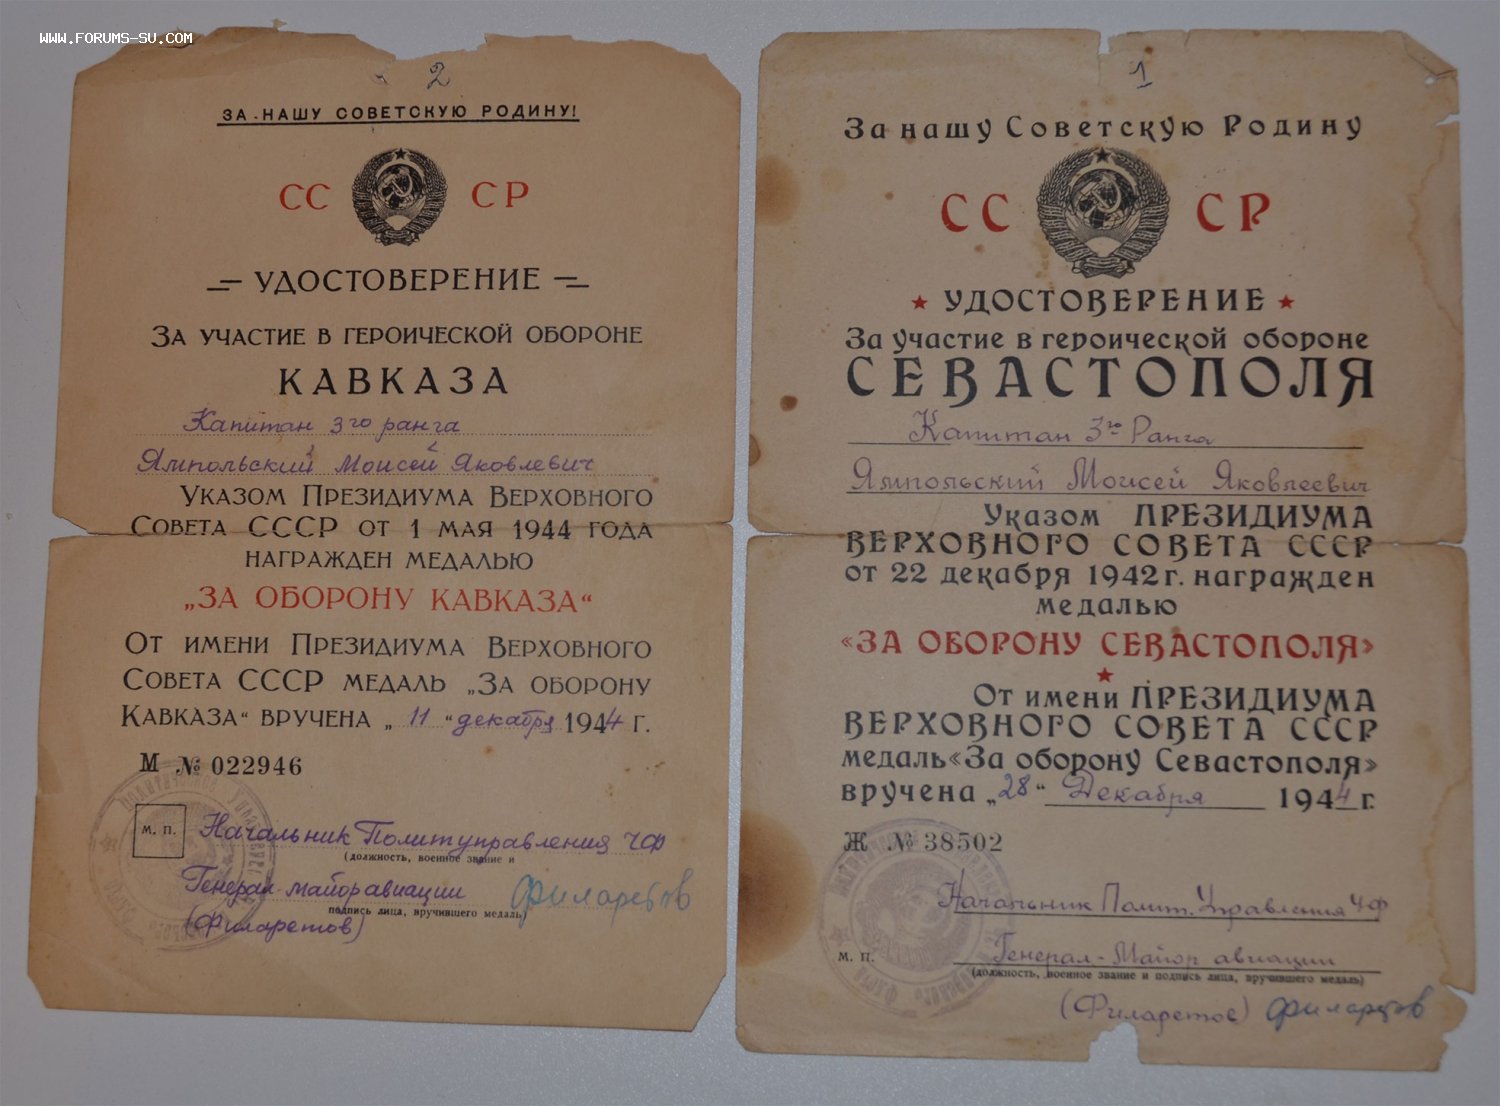 WWW.FORUMS-SU.COM
2
ЗА НАШУ СОВЕТСКУЮ РОДИНУ!
СС СР
УДОСТОВЕРЕНИЕ
ЗА УЧАСТИЕ В ГЕРОИЧЕСКОЙ ОБОРОНЕ
КАВКАЗА
Капитан 3го ранга
Ямпольский Моисей Яковлевич
УКАЗОМ ПРЕЗИДИУМА ВЕРХОВНОГО
СОВЕТА СССР ОТ 1 МАЯ 1944 ГОДА
НАГРАЖДЕН МЕДАЛЬЮ
„ЗА ОБОРОНУ КАВКАЗА“
ОТ ИМЕНИ ПРЕЗИДИУМА ВЕРХОВНОГО
СОВЕТА СССР МЕДАЛЬ „ЗА ОБОРОНУ
КАВКАЗА“ ВРУЧЕНА „11“ декабря 1944 г.
М № 022946
М. П.
Начальник Политуправления ЧФ
(должность, военное звание и
Генерал-майор авиации Филаретов
подпись лица, вручившего медаль)
(Филаретов)
1
За нашу Советскую Родину
СС СР
УДОСТОВЕРЕНИЕ
За участие в героической обороне
СЕВАСТОПОЛЯ
Капитан 3го Ранга
Ямпольский Моисей Яковлеевич
Указом ПРЕЗИДИУМА
ВЕРХОВНОГО СОВЕТА СССР
от 22 декабря 1942 г. награжден
медалью
«ЗА ОБОРОНУ СЕВАСТОПОЛЯ»
От имени ПРЕЗИДИУМА
ВЕРХОВНОГО СОВЕТА СССР
медаль «За оборону Севастополя»
вручена „28“ Декабря 1944 г.
Ж № 38502
Начальник Полит. Управления ЧФ
М. П. Генерал-Майор авиации
(должность, военное звание и подпись лица, вручившего медаль)
(Филаретов) Филаретов